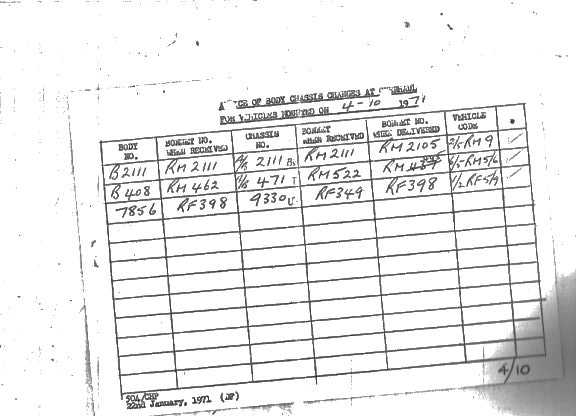 OF BODY CHASSIS CHANGES AT OVERHAUL
FOR VEHICLES MOUNTED ON 4-10 1971
BODY NO. BONNET NO. WHEN RECEIVED CHASSIS NO. BONNET WHEN RECEIVED BONNET NO. WHEN DELIVERED VEHICLE CODE *
B2111 RM2111 2111 RM2111 RM2105 2/5RM9 ✓
B408 RM462 471 RM522 RM437 RM5/6 ✓
7856 RF398 9330U RF349 RF398 1/2RF5/9 ✓
4/10
504/CHP
22nd January, 1971 (DF)